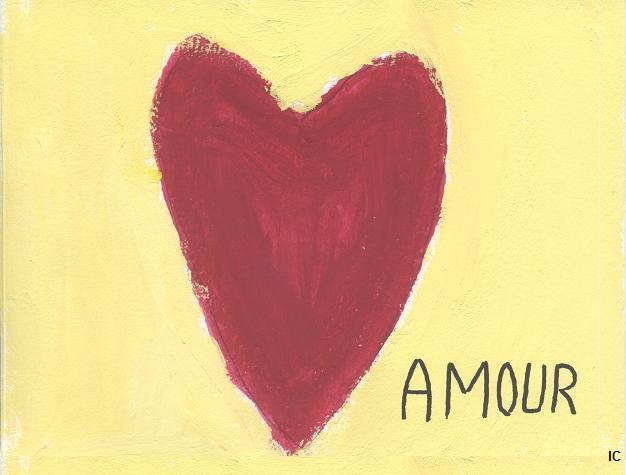 AMOUR
IC